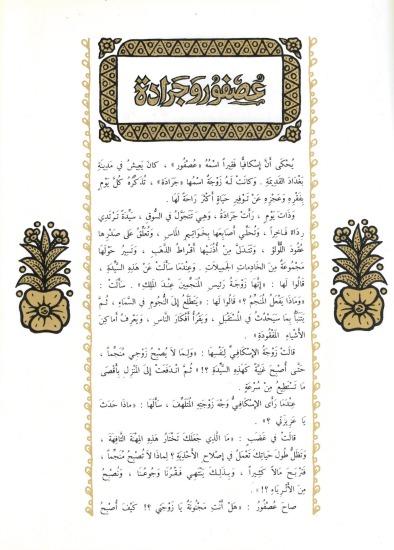 عُصفُور وَجَرادة
يُحْكَى أَنَّ إِسْكافِيًّا فَقيراً اسْمُهُ «عُصْفُور» ، كانَ يَعِيشُ في مَدينَةِ
بَغْدادَ القَديمَةِ . وَكَانَتْ لَـهُ زَوْجَةٌ اسْمُها «جَرادَة» ، تُذَكِّرُهُ كُلَّ يَوْمٍ
بِفَقْرِهِ وَعَجْزِهِ عَنْ تَوْفيرِ حَياةٍ أَكْثَرَ رَاحَةً لَها .
وَذَاتَ يَوْمٍ ، رَأَتْ جَرَادَةُ ، وَهِيَ تَتَجَوَّلُ في السُّوقِ ، سَيِّدَةً تَرْتَدي
رِدَاءً فَاخِراً ، وتُغَطِّي أَصابِعَها بِخَواتيمِ المَاسِ ، وتُعَلِّقُ عَلى صَدْرِها
عُقودَ اللُّؤْلُؤِ ، وتَتَدَلَّىٰ مِنْ أُذُنَيْها أَقْراطُ الذَّهَبِ ، وتَسيرُ حَوْلَها
مَجْموعَةٌ مِنَ الخَادِماتِ الجَميلاتِ . وَعِنْدَما سَأَلَتْ عَنْ هَذِهِ السَّيِّدَةِ ،
قالُوا لَها : «إِنَّها زَوْجَةُ رَئيسِ المُنَجِّمينَ عِنْدَ المَلِكِ» . سَأَلَتْ :
«وَماذَا يَفْعَلُ المُنَجِّمُ ؟» قَالُوا لَها : «يَتَطَلَّعُ إِلَىٰ النُّجُومِ في السَّماءِ ، ثُـمَّ
يَتَنَبَّأُ بِما سَيَحْدُثُ في المُسْتَقْبَلِ ، وَيَقْرَأُ أَفْكارَ النَّاسِ ، وَيَعْرِفُ أَماكِنَ
الأَشْياءِ المَفْقودَةِ» .
قَالَتْ زَوْجَةُ الإِسْكافِيِّ لِنَفْسِها : «وَلِـمَا لا يُصْبِحُ زَوْجي مُنَجِّماً ،
حَتَّى أُصْبِحَ غَنِيَّةً كَهَذِهِ السَّيِّدَةِ ؟!» ثُـمَّ انْـدَفَعَتْ إِلَىٰ المَنْزِلِ بِأَقْصَىٰ
مَا تَسْتَطيعُ مِنْ سُرْعَةٍ .
عِنْدَما رَأَى الإِسْكافِيُّ وَجْهَ زَوْجَتِهِ المُتَلَهِّفَ ، سَأَلَها : «ماذَا حَدَثَ
يا عَزيزَتي ؟» .
قَالَتْ في غَضَبٍ : «مَا الَّذي جَعَلَكَ تَخْتَارُ هَذِهِ المِهْنَةَ التَّافِهَةَ ،
وَتَظَلُّ طُولَ حَياتِكَ تَعْمَلُ في إِصْلاحِ الأَحْذِيَةِ ؟ لِماذَا لا تُصْبِحُ مُنَجِّماً ،
فَتَرْبَحَ مَالاً كَثيراً ، وَبِـذَلِـكَ يَنْتَهي فَقْرُنَا وَجُوعُنا ، وَنُصْبِحُ
مِنَ الأَثْرِياءِ ؟!» .
صَاحَ عُصْفُورُ : «هَلْ أَنْتِ مَجْنُونَةٌ يا زَوْجَتي ؟! كَيْفَ أُصْبِحُ